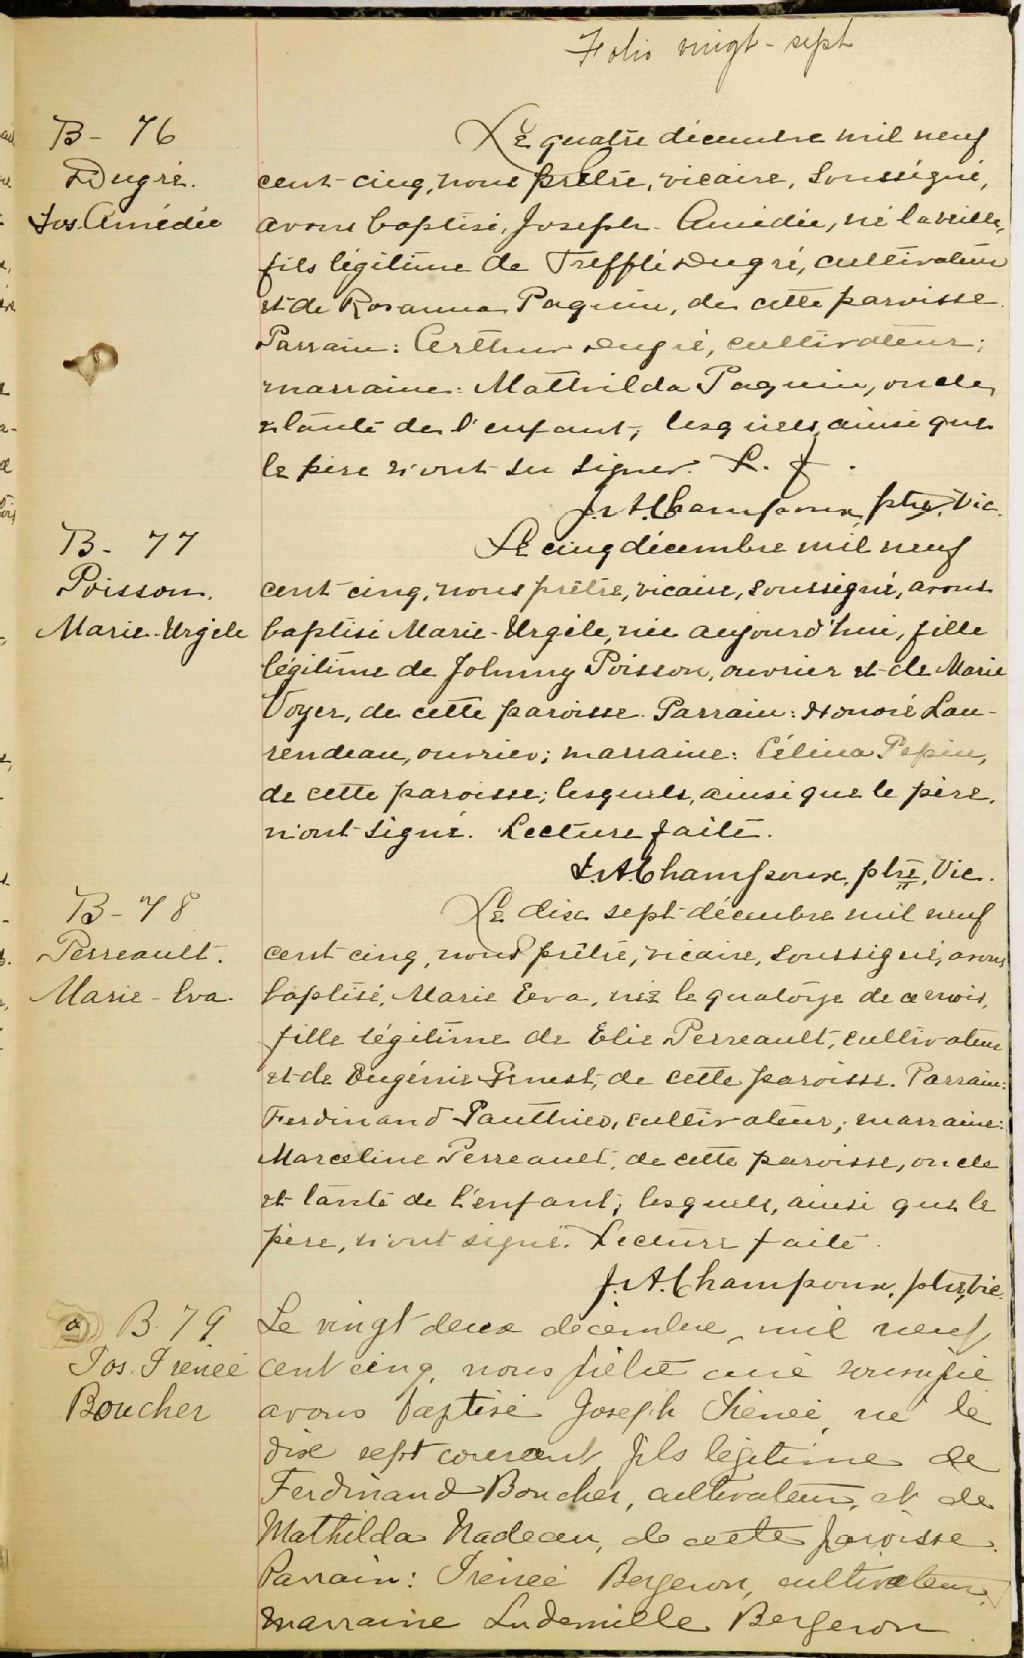 Folio vingt-sept
B- 76
Dugré.
Jos. Amédée
Le quatre décembre mil neuf
cent-cinq, nous prêtre, vicaire, soussigné,
avons baptisé, Joseph-Amédée, né la veille,
fils légitime de Trefflé Dugré, cultivateur
et de Rosanna Paquin, de cette paroisse.
Parrain: Arthur Dugré, cultivateur;
marraine: Mathilda Paquin, oncle
et tante de l'enfant, lesquels, ainsi que
le père n'ont su signer. L. f.
J. A. Champoux, ptre, Vic.
B- 77
Poisson.
Marie-Urgèle
Le cinq décembre mil neuf
cent cinq, nous prêtre, vicaire, soussigné, avons
baptisé Marie-Urgèle, née aujourd'hui, fille
légitime de Johnny Poisson, ouvrier et de Marie
Voyer, de cette paroisse. Parrain: Honoré Lau-
rendeau, ouvrier; marraine: Célina Pepin,
de cette paroisse; lesquels, ainsi que le père,
n'ont signé. Lecture faite.
J. A. Champoux, ptre, Vic.
B- 78
Perreault.
Marie-Eva.
Le dix sept décembre mil neuf
cent cinq, nous prêtre, vicaire, soussigné, avons
baptisé, Marie Eva, née le quatorze de ce mois,
fille légitime de Elie Perreault, cultivateur
et de Eugénie Genest, de cette paroisse. Parrain:
Ferdinand Pauthier, cultivateur; marraine:
Marceline Perreault, de cette paroisse, oncle
et tante de l'enfant, lesquels, ainsi que le
père, n'ont signé. Lecture faite.
J. A. Champoux, ptre, vic.
B. 79
Jos. Irénée
Boucher
Le vingt deux décembre, mil neuf
cent cinq, nous prêtre curé soussigné
avons baptisé Joseph Irénée, né le
dix sept courant, fils légitime de
Ferdinand Boucher, cultivateur, et de
Mathilda Nadeau, de cette paroisse.
Parrain: Irénée Bergeron, cultivateur,
marraine Ludemille Bergeron